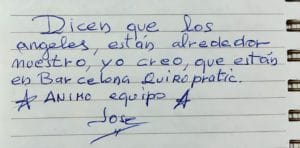 Dicen que los
angeles, están alrededor
nuestro, yo creo, que están
en Barcelona Quiropratic.
☆ ANIMO equipo ☆
Jose